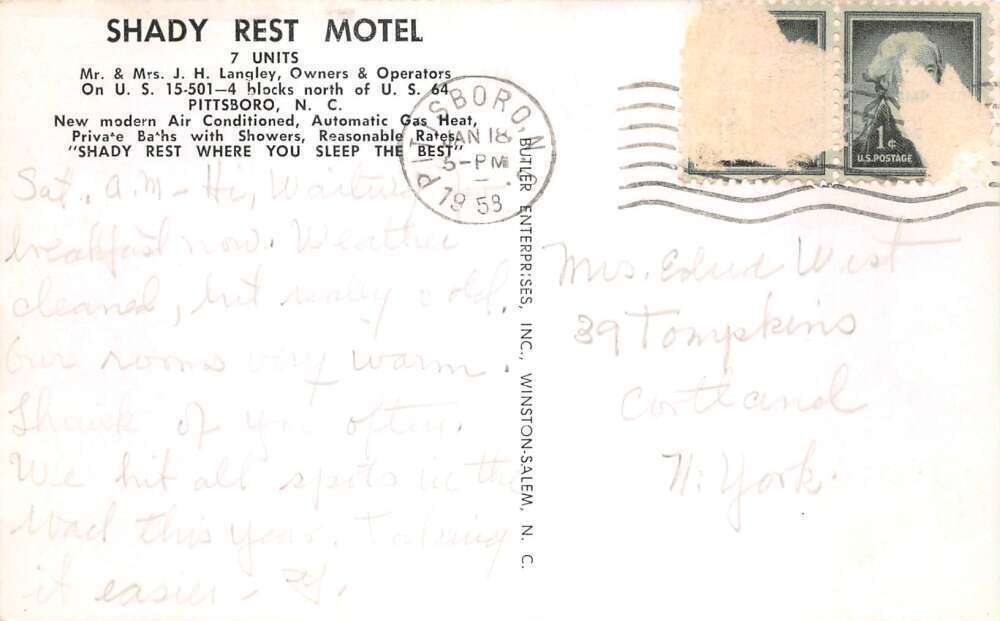 SHADY REST MOTEL
7 UNITS
Mr. & Mrs. J. H. Langley, Owners & Operators
On U. S. 15-501—4 blocks north of U. S. 64
PITTSBORO, N. C.
New modern Air Conditioned, Automatic Gas Heat,
Private Baths with Showers, Reasonable Rates.
"SHADY REST WHERE YOU SLEEP THE BEST"
PITTSBORO, N.C.
JAN 18
5-PM
1958
1¢
U.S. POSTAGE
Sat. A.M - Hi, Waiting
breakfast now. Weather
cleared, but really cold.
Our rooms very warm.
Think of you often.
We hit all spots in the
road this year. Taking
it easier -
BUTLER ENTERPRISES, INC., WINSTON-SALEM, N. C.
Mrs. Edna West
39 Tompkins
Cortland
N. York.